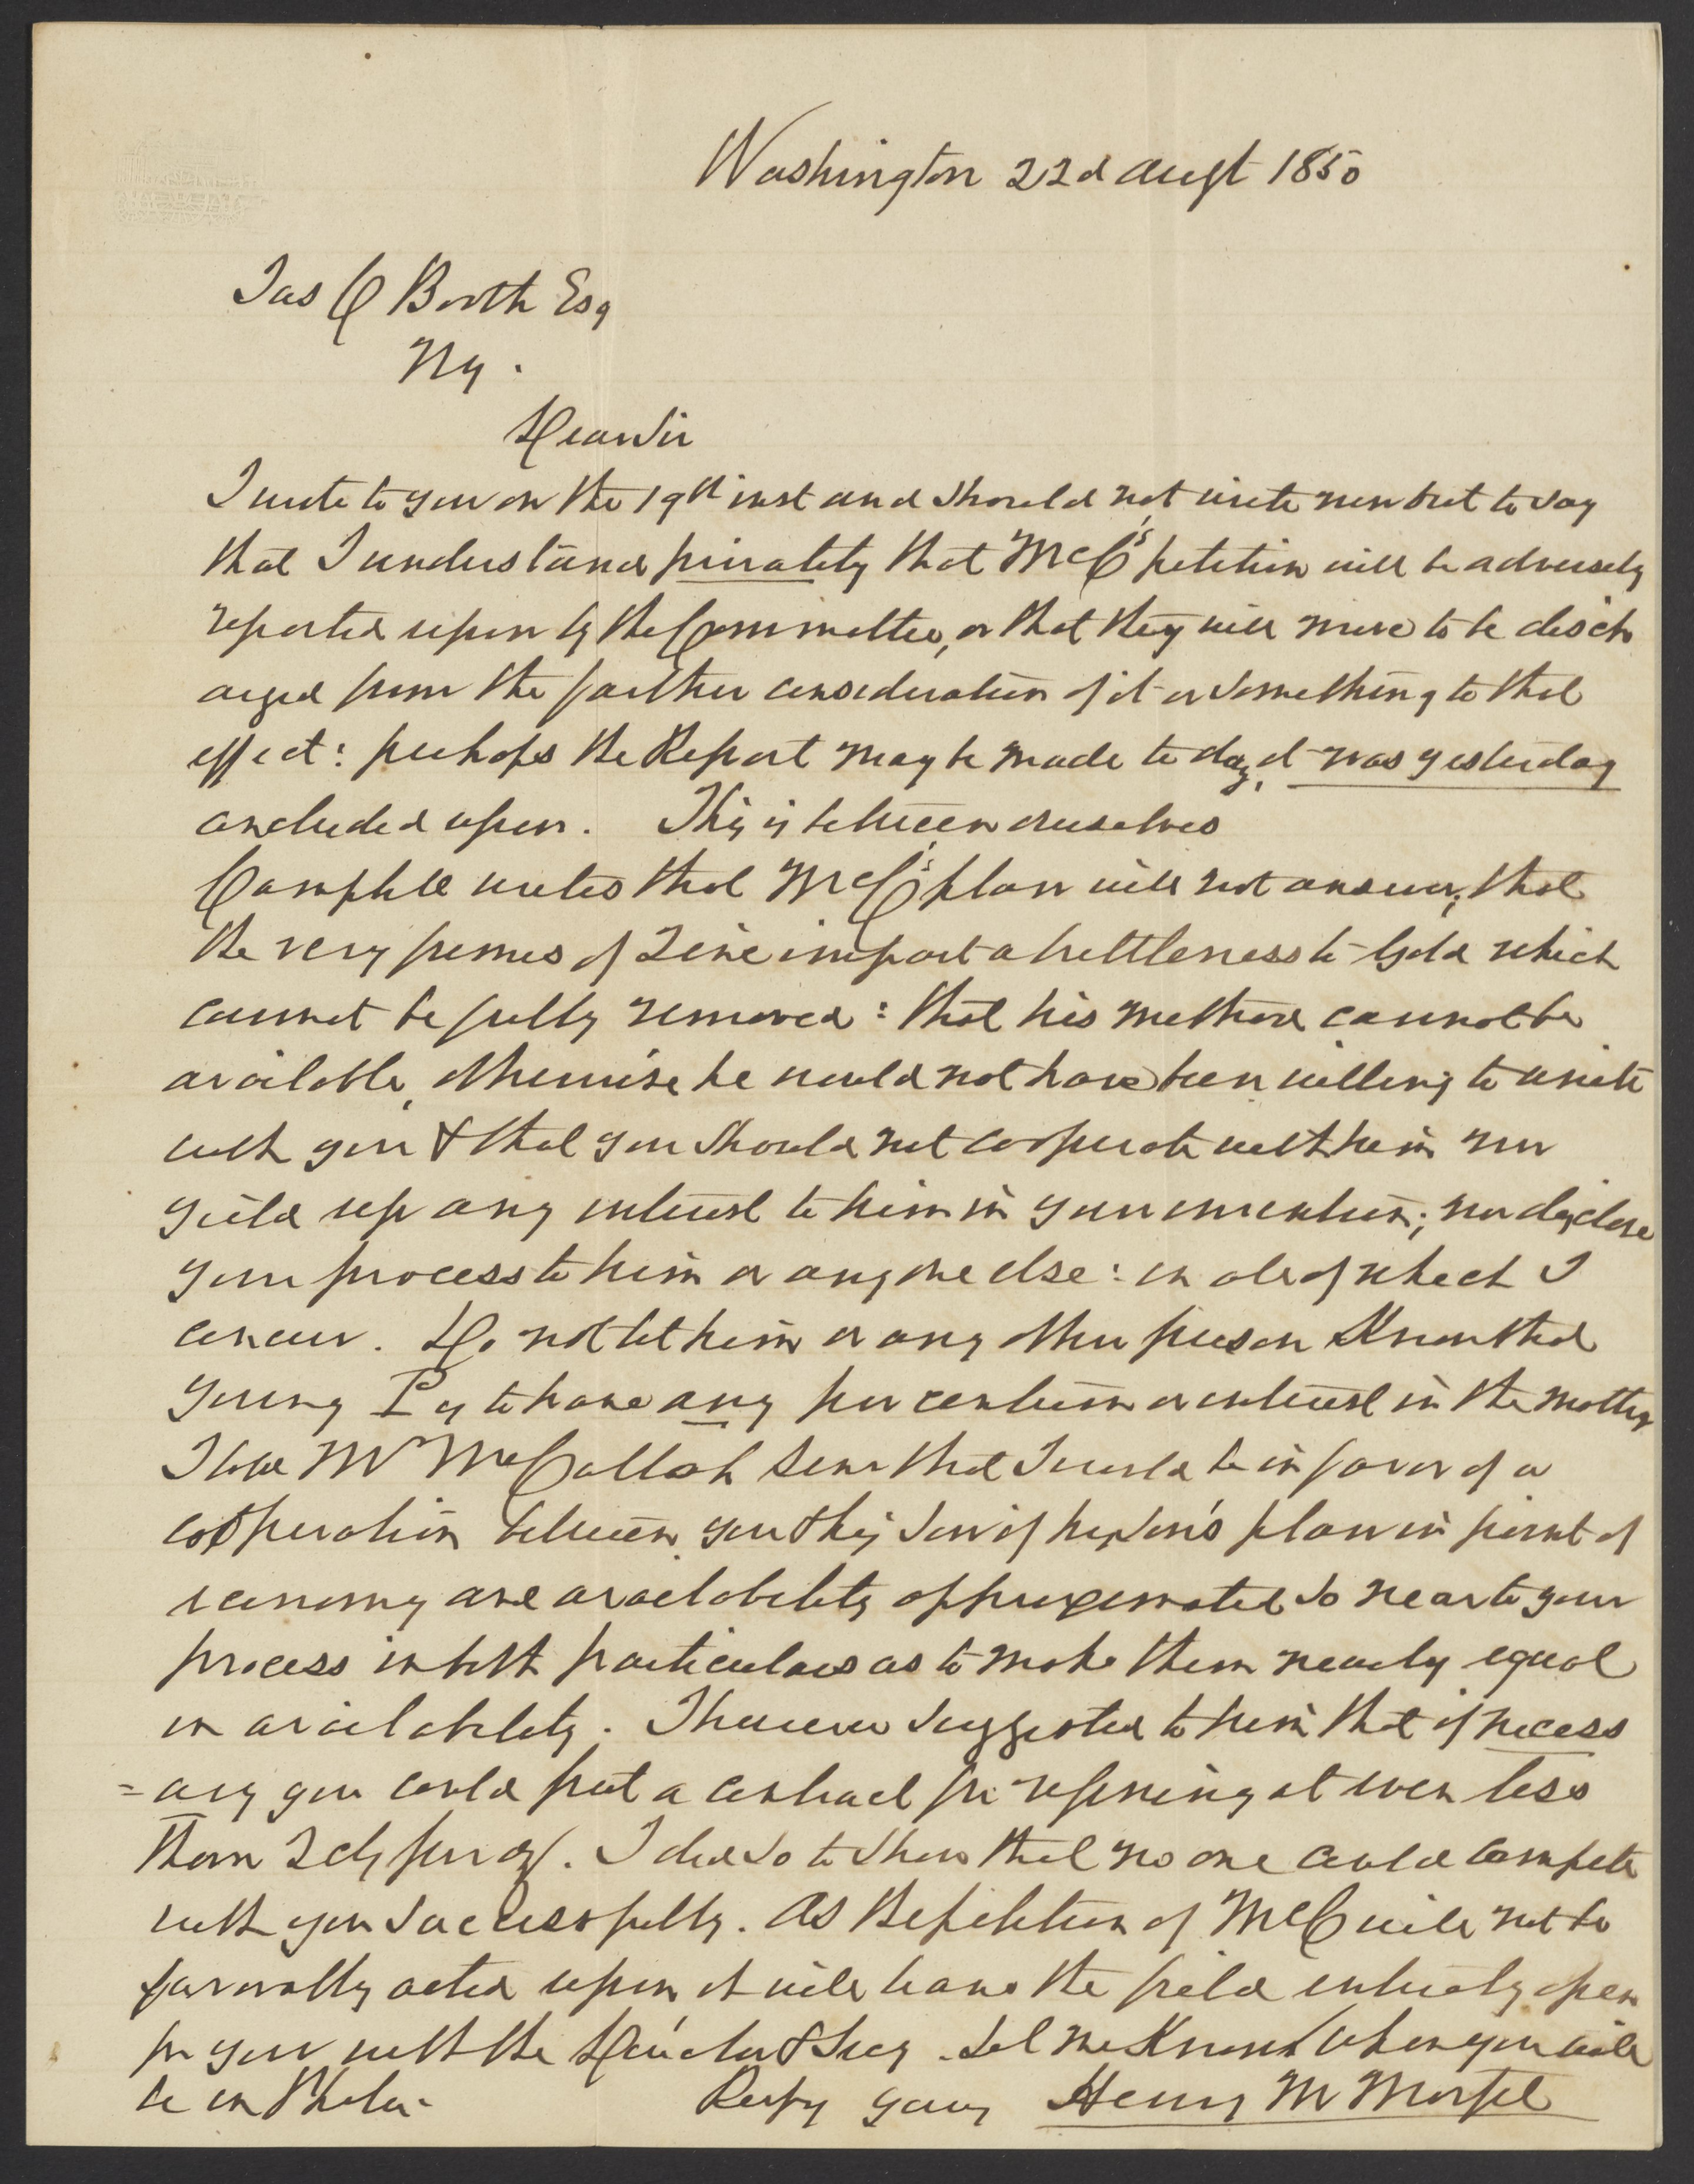 Washington 22d augt 1850
Jas C Booth Esq
Ny.
Dear Sir
I wrote to you on the 19th inst and should not write now but to say
that I understand privately that McC's petition will be adversely
reported upon by the Committee, or that they will move to be disch
arged from the further consideration of it or something to that
effect: perhaps the Report may be made to day, it was yesterday
concluded upon. This is between ourselves
Campbell writes that McC's plan will not answer; that
the very fumes of Zinc impart a brittleness to Gold which
cannot be fully removed: that his method cannot be
available, otherwise he would not have been willing to unite
with you & that you should not cooperate with him nor
yield up any interest to him in your invention; nor disclose
your process to him or any one else: in all of which I
concur. Do not let him or any other person Know that
young P is to have any per centum or interest in the matter
I told Mr McCulloh Senr that I would be in favor of a
cooperation between you & his son if his son's plan in point of
economy and availability approximated so near to your
process in both particulars as to make them nearly equal
in availability. I however suggested to him that if necess
=ary you could put a contract for refining at even less
than 2 cts per oz. I did so to show that no one could compete
with you successfully. As the petition of McC will not be
favorably acted upon it will leave the field entirely open
for you with the Director & Secy. Let me Know when you will
be in Phila. Respy yours Henry M Morfit